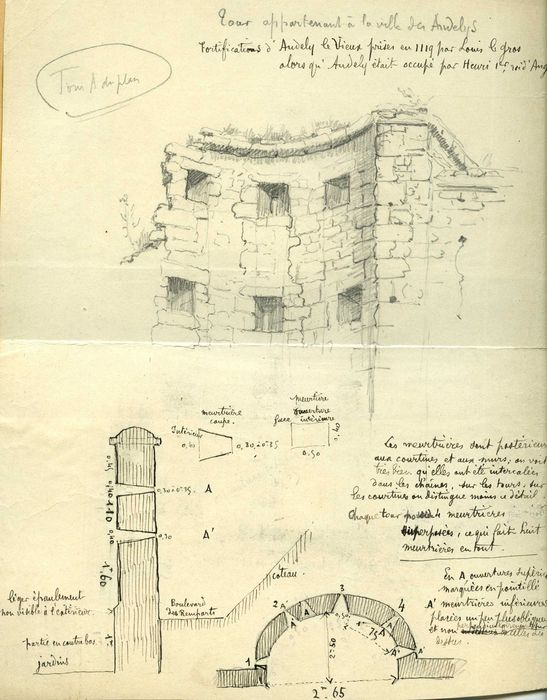 Tour appartenant à la ville des Andelys
Fortifications d'Andely le Vieux prises en 1119 par Louis le gros
alors qu'Andely était occupé par Henri 1er roi d'Ang
Tour A du plan
meurtrière
coupe.
Intérieur
0,60
0,30 à 0.35
meurtrière
ouverture
face intérieure
0.50
0,30 à 0.35
A
A'
0,30
1.10
1.60
Les meurtrières sont postérieures
aux courtines et aux murs, on voit
très bien qu'elles ont été intercalées
dans les chaînes, sur les tours. sur
les courtines on distingue moins ce détail
Chaque tour 4 meurtrières
superposées, ce qui fait huit
meurtrières en tout.
En A ouvertures supérieures
marquées en pointillé
A' meurtrières inférieures
placées un peu plus obliques
et non
léger épaulement
non visible à l'extérieur.
partie en contrebas
jardins
Boulevard
des Remparts
coteau.
1
2
3
4
A
A
A
A'
A'
0,50
1m 75
2m 50
2m 65